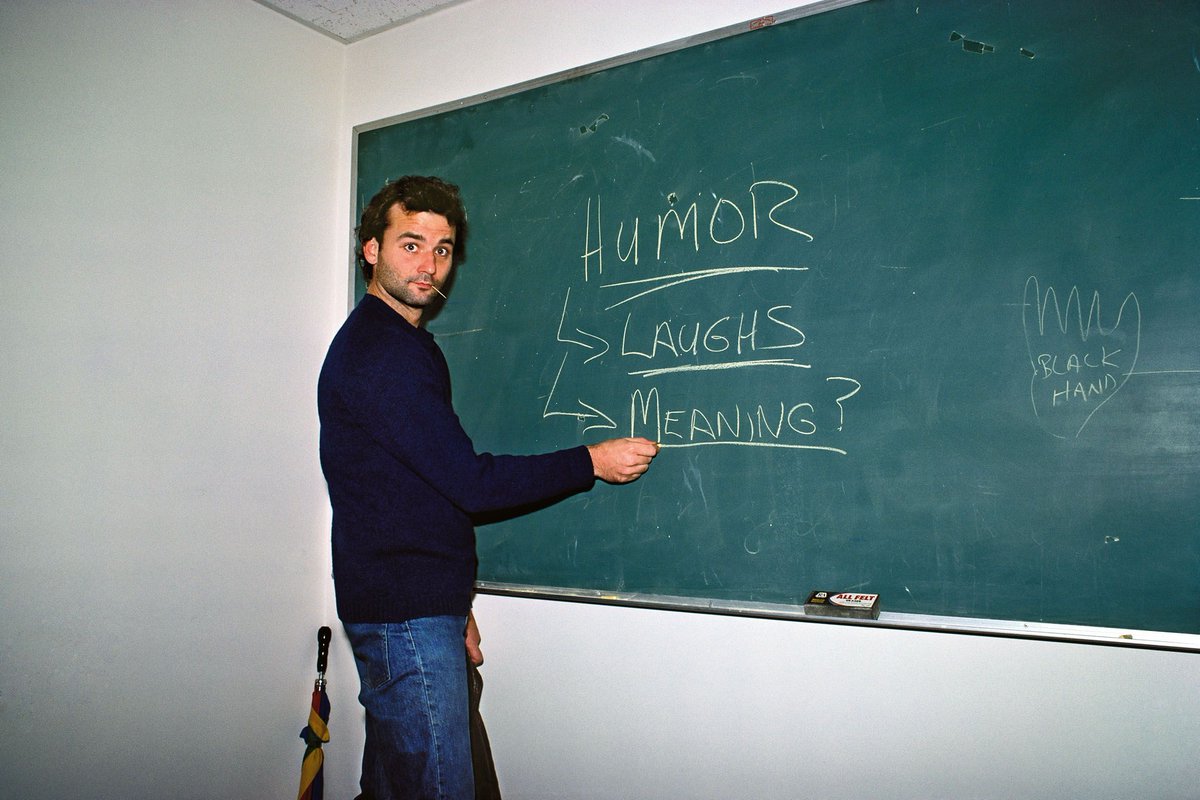 HUMOR
LAUGHS
MEANING?
BLACK
HAND
ALL FELT